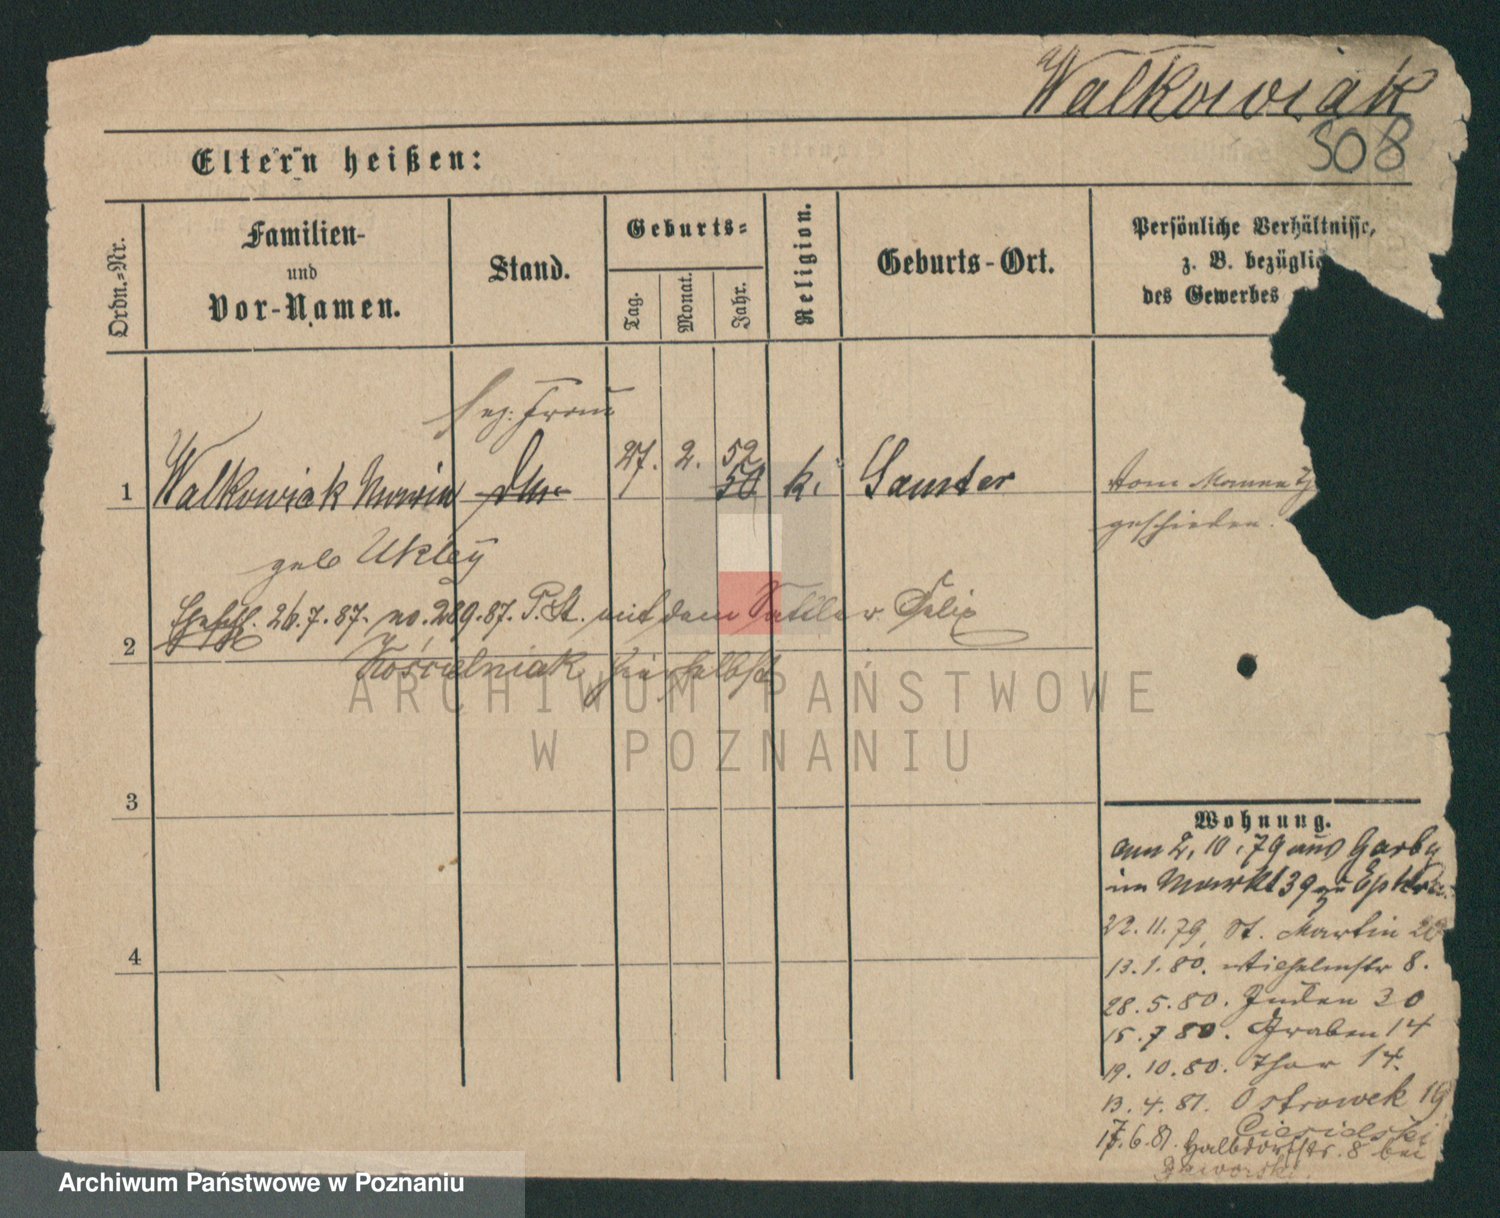 Walkowiak
308
Eltern heißen:
Ordn.-Nr.
Familien-
und
Vor-Namen.
Stand.
Geburts-
Tag.
Monat.
Jahr.
Religion.
Geburts-Ort.
Persönliche Verhältnisse,
z. B. bezüglic
des Gewerbes
Frau
1 Walkowiak Maria 27. 2. 52 50 k. Samter
vom Manne
geschieden.
geb Ukley
26.7.87. no. 289.87. P. St. mit dem Sattler Felix
2
Kościelniak hierselbst
3
4
Wohnung.
am 2. 10. 79 aus Garby
im Markt 39 zu
22. 11. 79, St. Martin
13. 1. 80. Wilhelmstr 8.
28. 5. 80. Juden 30
15. 7 80. Graben 14
19. 10. 80. Thor 14.
13. 4. 81. Ostrowek 19
6. 81. Halbdorfstr. 8 bei
Jaworski.
ARCHIWUM PAŃSTWOWE
W POZNANIU
Archiwum Państwowe w Poznaniu